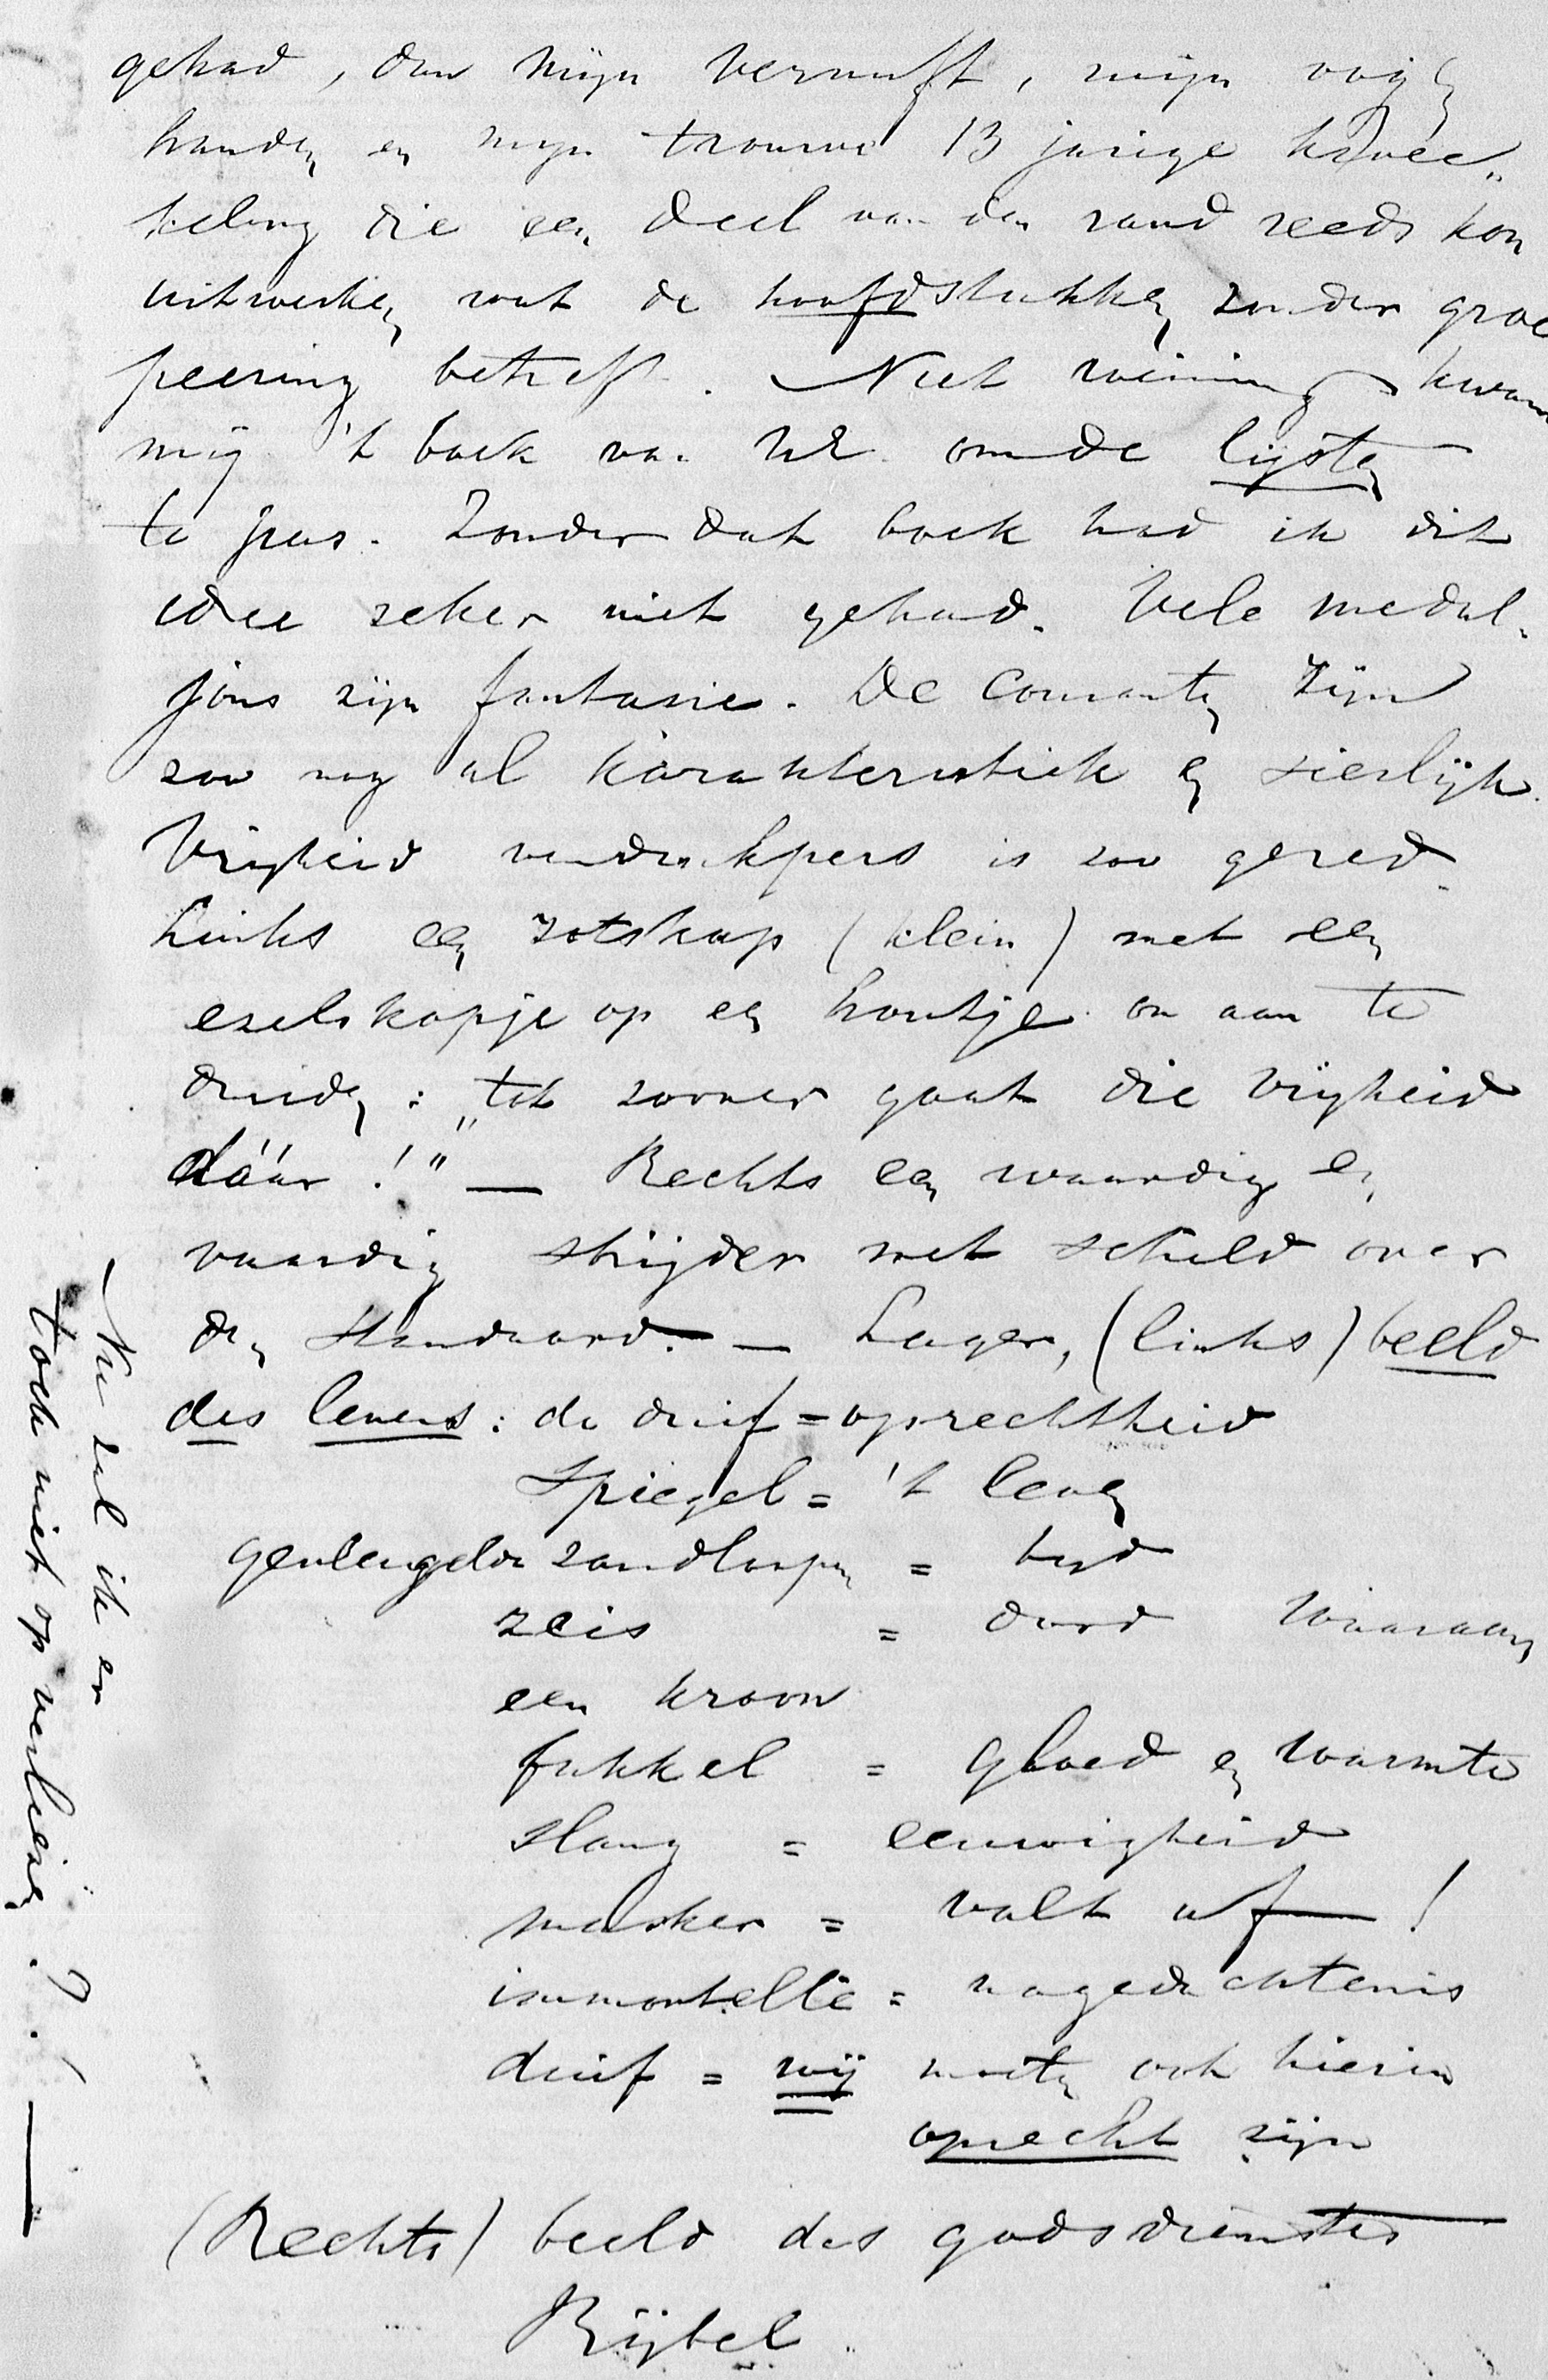 gehad, dan mijn vernuft, mijn
handen en mijn trouwe 13 jarige kwee„
keling die een deel van den rand reeds kon
uitwerken, wat de hoofdstukken zonder groe
peering betreft. Niet weinig kwam
mij 't boek van om de lijsten
te pas. Zonder dat boek had ik dit
idee zeker niet gehad. Vele medal„
jons zijn fantasie. De Couranten zijn
zoo nog al karakteristiek en sierlijk.
Vrijheid van drukpers is zoo gered.
Links een zotskap (klein) met een
ezelskopje op een houtje om aan te
duiden: „tot zoover gaat die vrijheid
dáár!" — Rechts een waardig en
vaardig strijder met schild over
den Standaard. — Lager, (links) beeld
des levens: de duif = oprechtheid
Spiegel = 't leven
gevleugelde zandlooper = tijd
zeis = dood waaraan
een kroon
fakkel = gloed en warmte
slang = eeuwigheid
masker = valt af!
immortelle = nagedachtenis
duif = wij moeten ook hierin
oprecht zijn
(Rechts) beeld des godsdienstes
Bijbel.
Nu zal ik er
toch niet op verliezen?! —